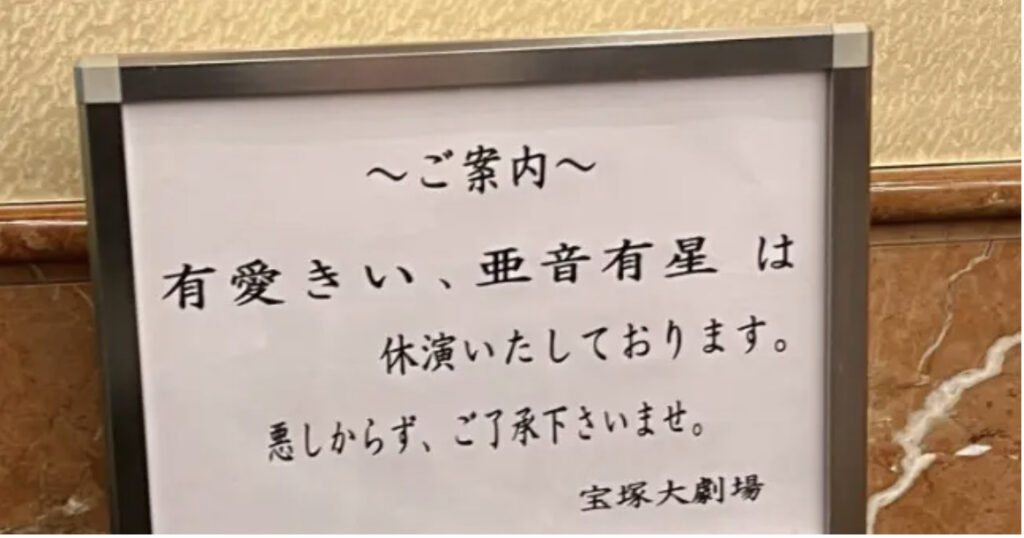 ～ご案内～
有愛きい、亜音有星 は
休演いたしております。
悪しからず、ご了承下さいませ。
宝塚大劇場